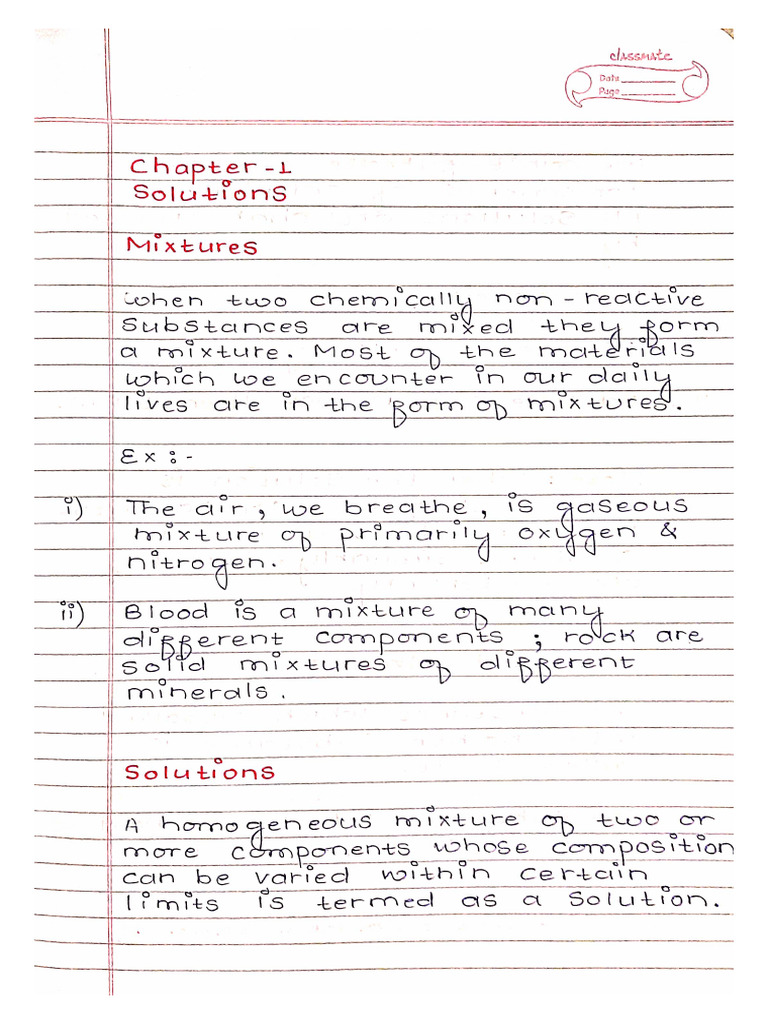 classmate
Date
Page
Chapter - 1
Solutions
Mixtures
When two chemically non - reactive
substances are mixed they form
a mixture. Most of the materials
which we encounter in our daily
lives are in the form of mixtures.
Ex : -
i) The air, we breathe, is gaseous
mixture of primarily oxygen &
nitrogen.
ii) Blood is a mixture of many
different components ; rock are
solid mixtures of different
minerals.
Solutions
A homogeneous mixture of two or
more components whose composition
can be varied within certain
limits is termed as a solution.